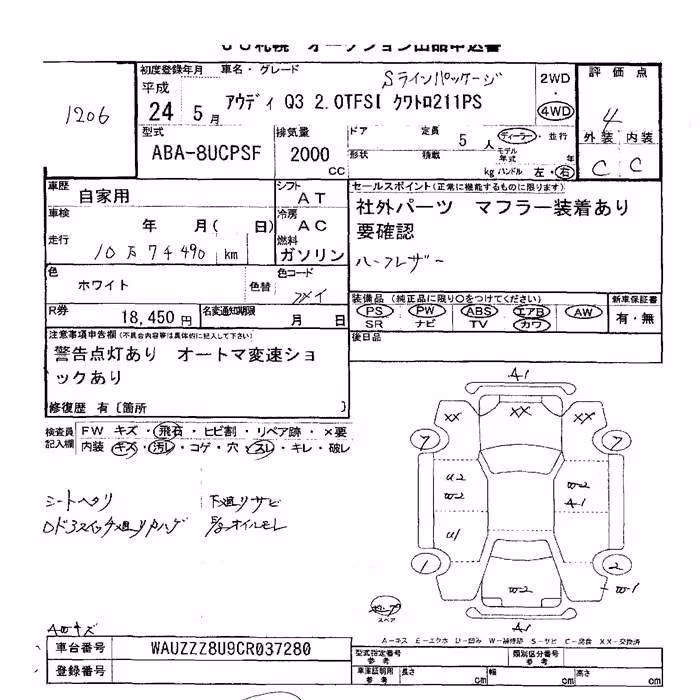 JU札幌 オークション出品申込書
1206
初度登録年月 車名・グレード
平成
24 5月
Sラインパッケージ
アウディ Q3 2.0TFSI クワトロ211PS
2WD
・
4WD
評価点
4
外装 内装
C C
型式
ABA-8UCPSF
排気量
2000
cc
ドア 定員 5人
形状 積載 kg
ディーラー・並行
モデル年式 年
ハンドル 左・右
車歴
自家用
シフト
AT
車検
年 月( 日)
冷房
AC
走行
10万7千490 km
燃料
ガソリン
色
ホワイト
色替
色コード
R券
18,450円
名変通知期限
月 日
セールスポイント(正常に機能するものに限ります)
社外パーツ マフラー装着あり
要確認
ハーフレザー
装備品(純正品に限り○をつけてください)
PS PW ABS エアB AW
SR ナビ TV カワ
新車保証書
有・無
後日品
注意事項申告欄(不具合内容等は具体的に記入して下さい)
警告点灯あり オートマ変速ショ
ックあり
修復歴 有〔箇所 〕
検査員
記入欄
FW キズ・飛石・ヒビ割・リペア跡・×要
内装 キズ・汚レ・コゲ・穴・スレ・キレ・破レ
シートヘタリ
下廻リサビ
オイルモレ
A1
XX XX XX
7 7
U2
W2
W2
A1
U1
1 2
W2
W1
A1
スペア
A-キズ E-エクボ U-凹み W-補修跡 S-サビ C-腐食 XX-交換済
車台番号
WAUZZZ8U9CR037280
登録番号
型式指定番号
参考
類別区分番号
参考
車庫証明用
参考
長さ cm 幅 cm 高さ cm